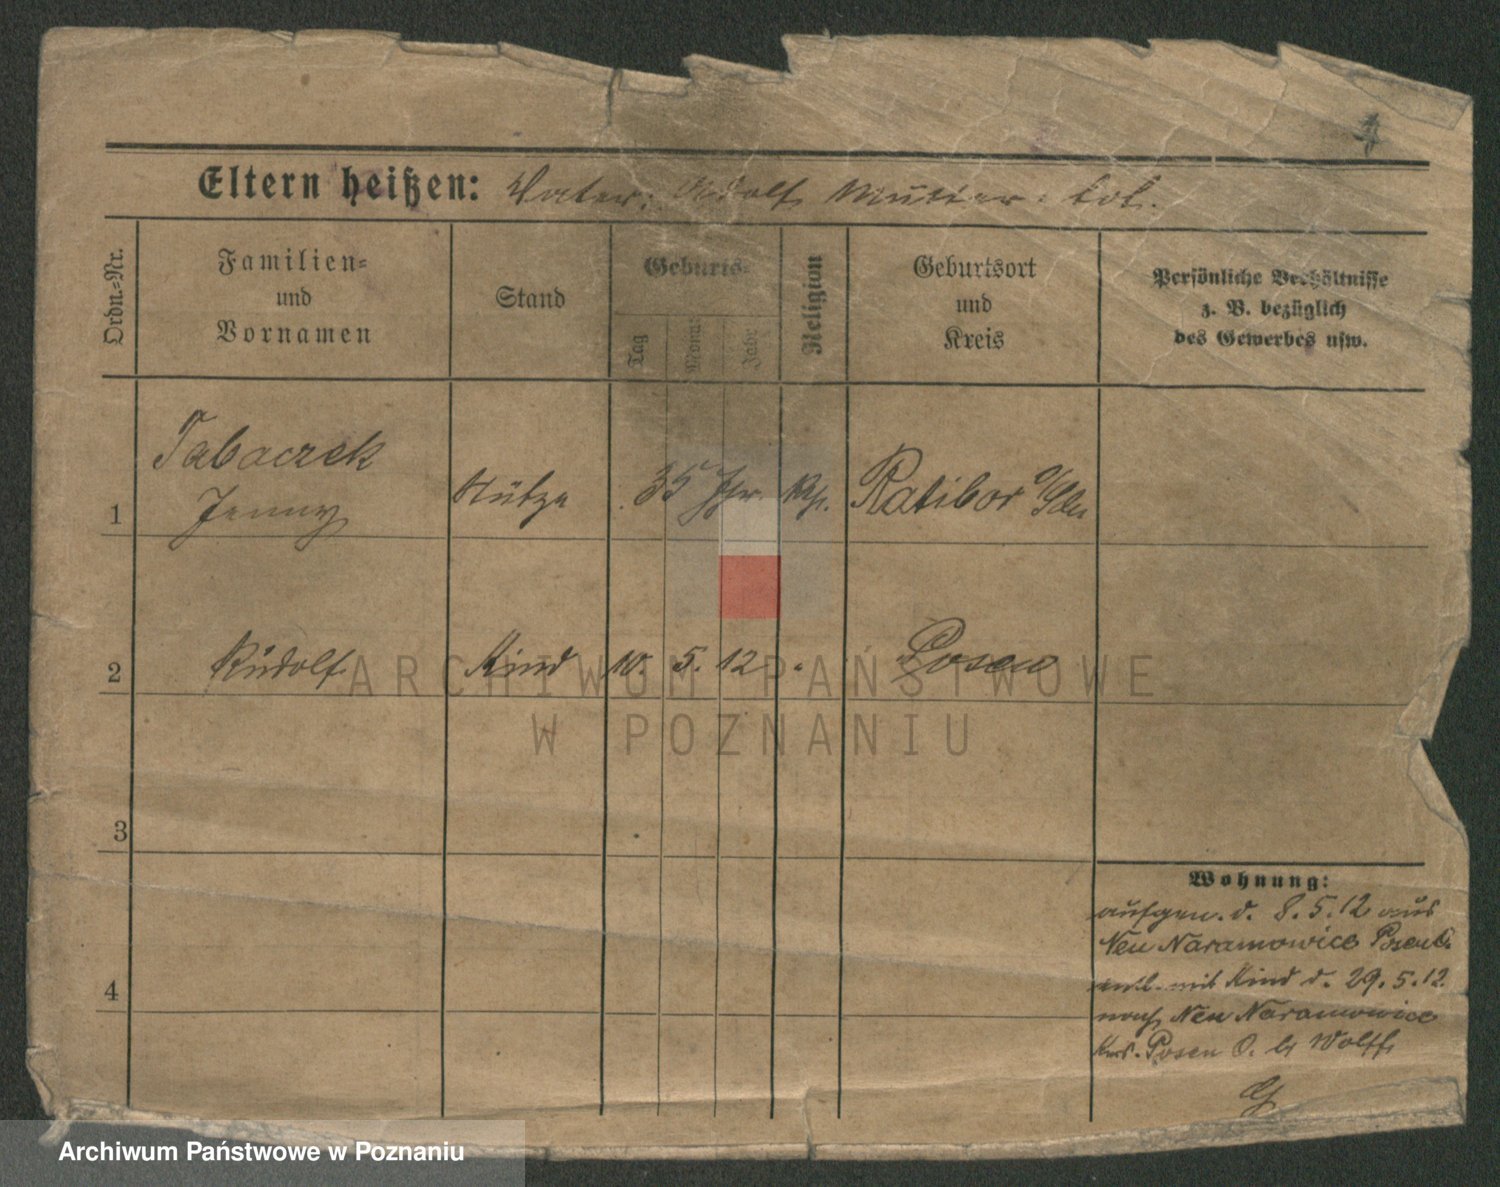 Eltern heißen: Vater: Adolf Mutter: tot.
Ordn.-Nr.
Familien-
und
Vornamen
Stand
Geburts-
Tag
Monat
Jahr
Religion
Geburtsort
und
Kreis
Persönliche Verhältnisse
z. B. bezüglich
des Gewerbes usw.
Tabaczek
1 Jenny Stütze 35 Jhr. Ratibor
2 Rudolf Kind 10. 5. 12 Posen
3
4
Wohnung:
aufgen. d. 8. 5. 12 aus
Neu Naramowice
entl. mit Kind d. 29. 5. 12
nach Neu Naramowice
Posen O. Wolff
ARCHIWUM PAŃSTWOWE
W POZNANIU
Archiwum Państwowe w Poznaniu